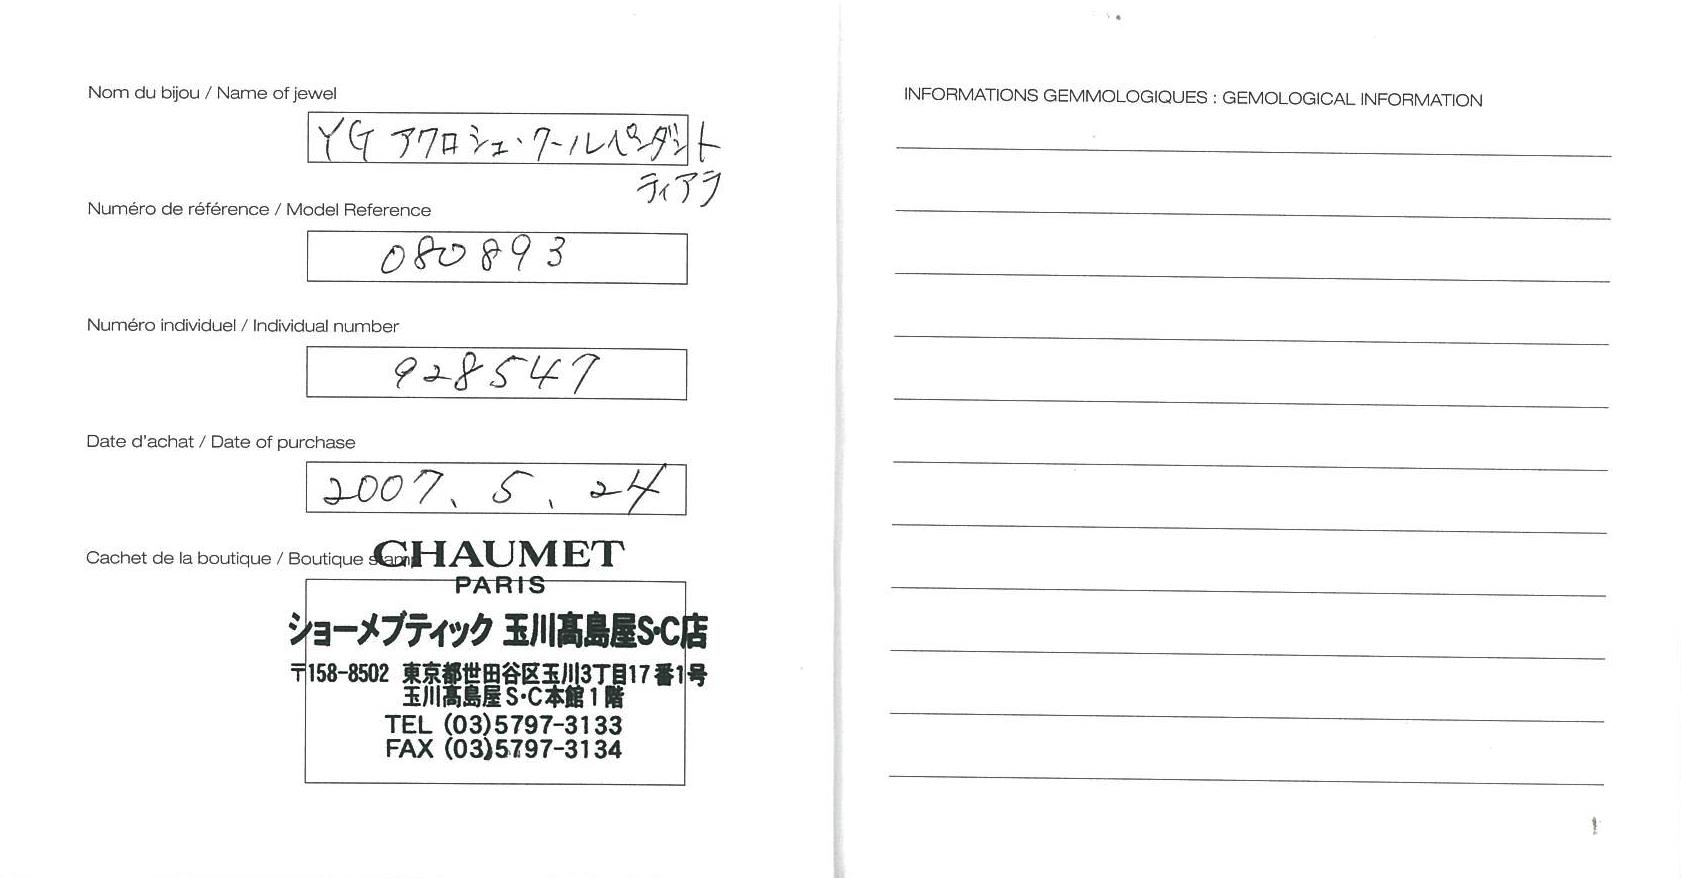 Nom du bijou / Name of jewel
YG アクロシュ・クールペンダント
ティアラ
Numéro de référence / Model Reference
080893
Numéro individuel / Individual number
928547
Date d'achat / Date of purchase
2007. 5. 24
Cachet de la boutique / Boutique stamp
CHAUMET
PARIS
ショーメブティック 玉川髙島屋S・C店
〒158-8502 東京都世田谷区玉川3丁目17番1号
玉川髙島屋S・C本館1階
TEL (03)5797-3133
FAX (03)5797-3134
INFORMATIONS GEMMOLOGIQUES : GEMOLOGICAL INFORMATION